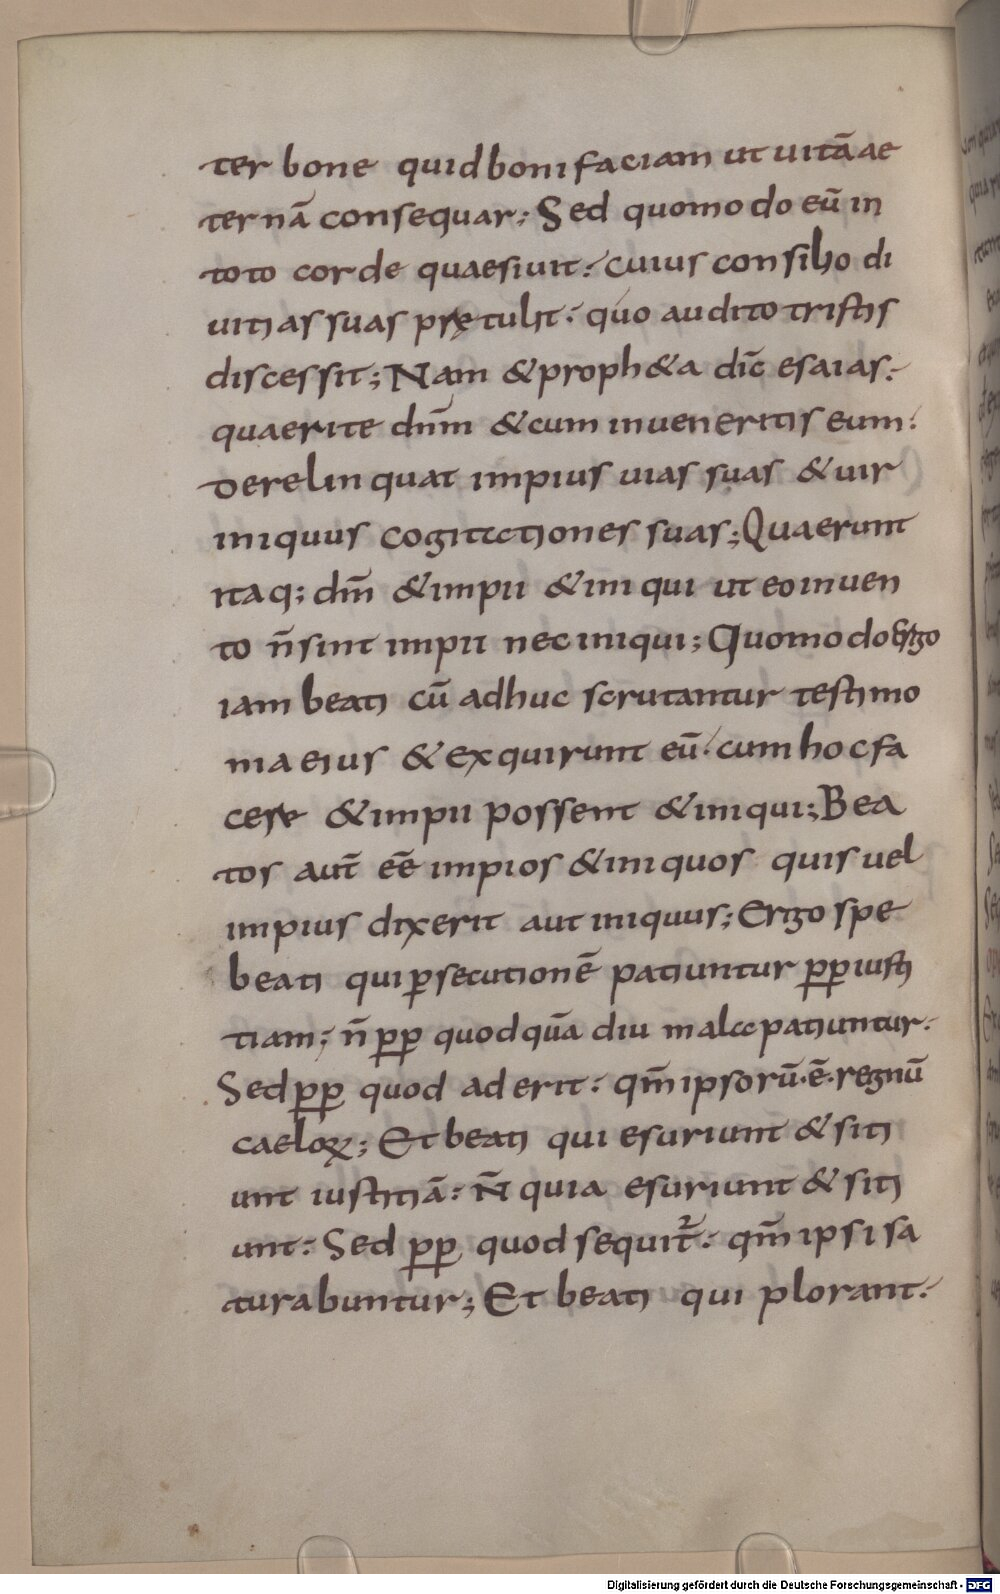 ter bone quid boni faciam ut uitā ae
ternā consequar; Sed quomodo eū in
toto corde quaesiuit: cuius consilio di
uitias suas prętulit: quo audito tristis
discessit; Nam & proph&a dic̄ esaias:
quaerite dnm̄ & cum inueneritis eum:
derelinquat impius uias suas & uir
iniquus cogitationes suas; Quaerunt
itaq; dm̄ & impii & iniqui ut eo inuen
to n̄ sint impii nec iniqui; Quomodo ergo
iam beati cū adhuc scrutantur testimo
nia eius & exquirunt eū· cum hoc fa
cere & impii possent & iniqui; Bea
tos aut̄ eē impios & iniquos quis uel
impius dixerit aut iniquus; Ergo spe
beati qui ꝑsecutionē patiuntur ꝓꝑ iusti
tiam; n̄ ꝓꝑ quod quā diu mala patiuntur:
Sed ꝓꝑ quod aderit: qm̄ ipsorū·ē·regnū
caeloꝝ; Et beati qui esuriunt & siti
unt iustitiā: N̄ quia esuriunt & siti
unt: Sed ꝓꝑ quod sequit᷑: qm̄ ipsi sa
turabuntur; Et beati qui plorant:
Digitalisierung gefördert durch die Deutsche Forschungsgemeinschaft - DFG